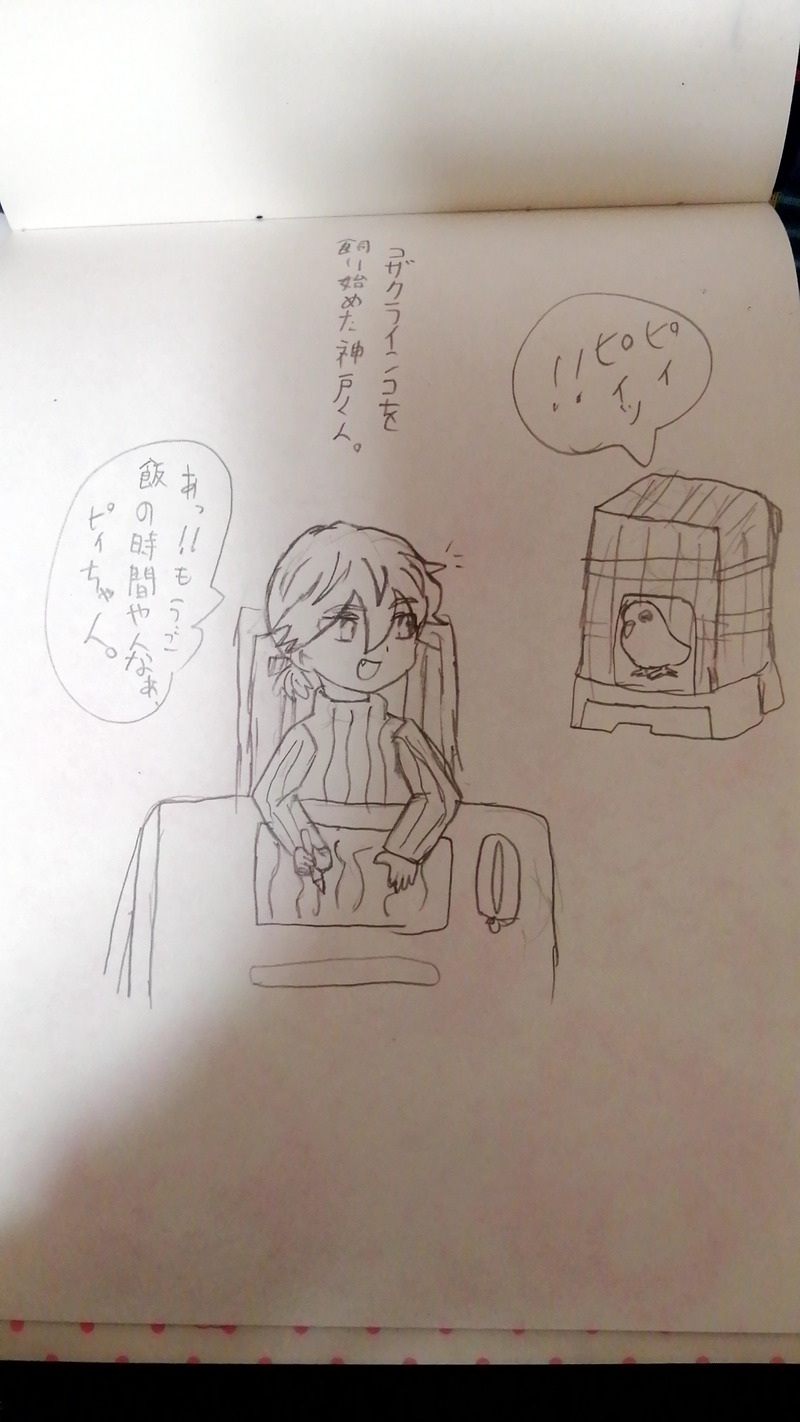 コザクラインコを
飼い始めた神戸くん。
ピィ
ピィッ
!!
あっ!!もうご
飯の時間やんなぁ、
ピィちゃん。